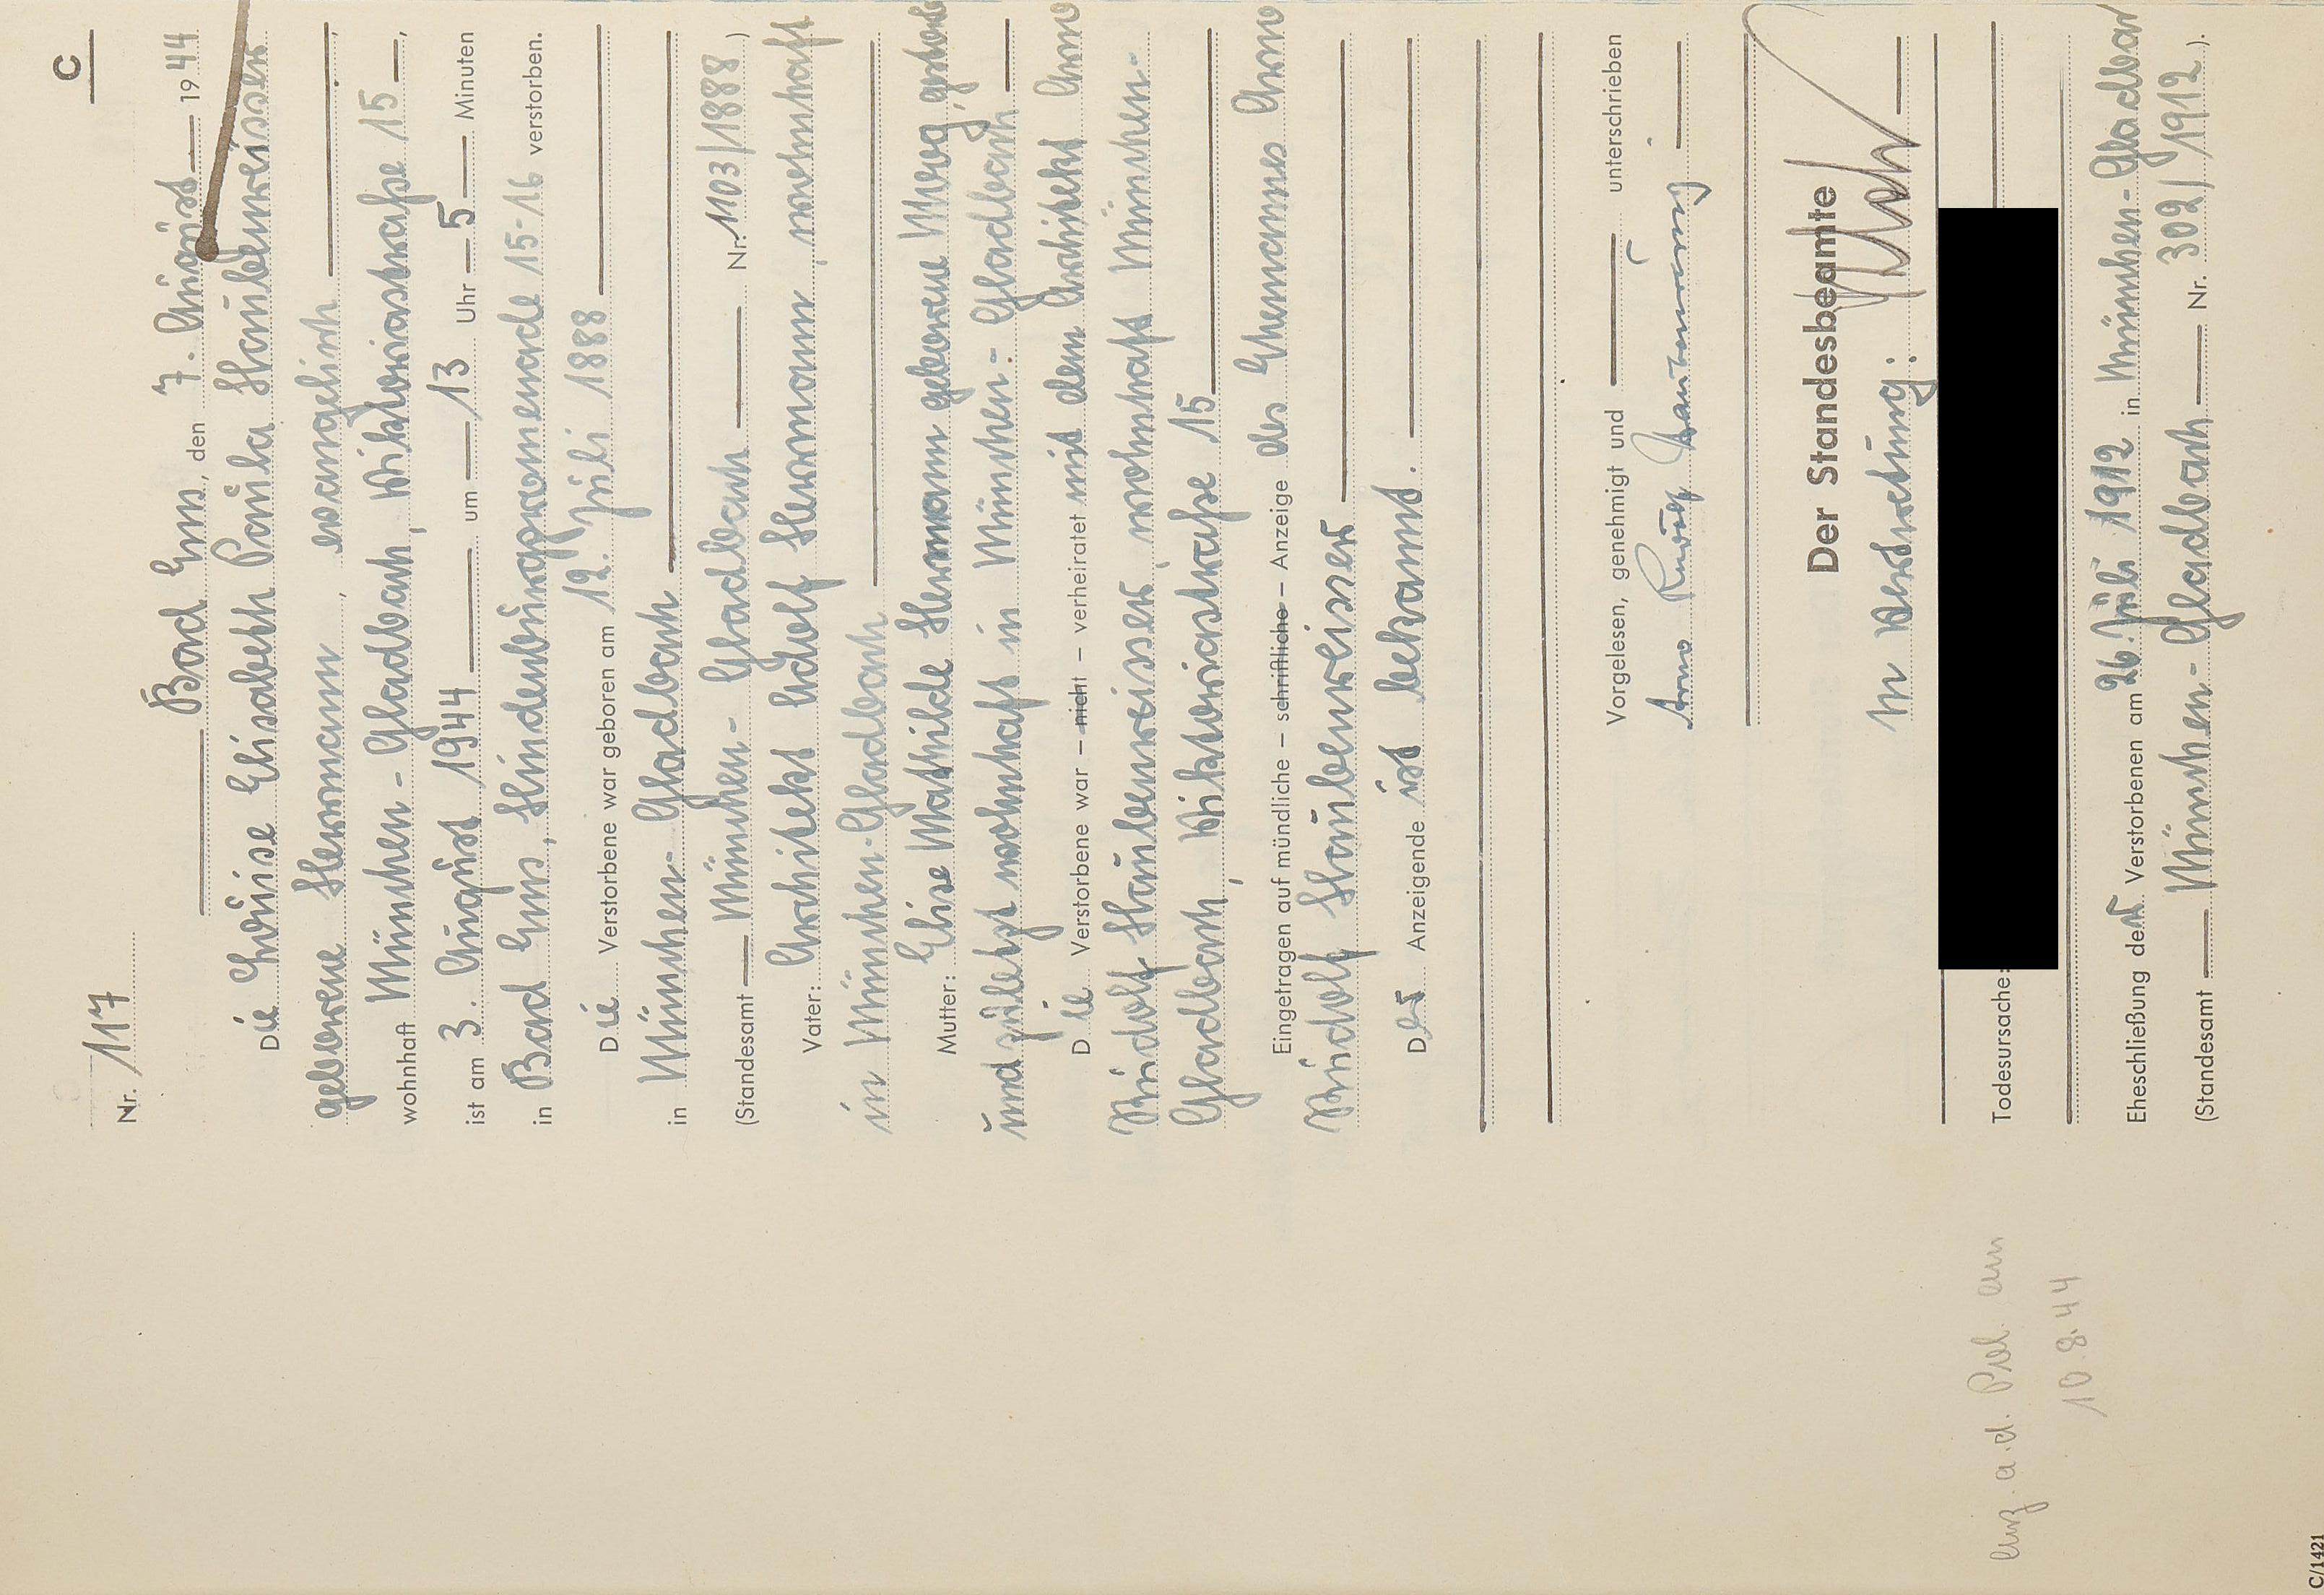 C
Nr. 117
Bad Ems, den 7. August 1944
Die Luise Elisabeth Paula Staubenweisser
geborene Hermann, evangelisch,
wohnhaft München-Gladbach, Viktoriastraße 15,
ist am 3. August 1944 um 13 Uhr 5 Minuten
in Bad Ems, Hindenburgpromenade 15-16 verstorben.
Die Verstorbene war geboren am 12. Juli 1888
in München-Gladbach
(Standesamt München-Gladbach Nr. 1103/1888)
Vater: Architekt Adolf Hermann, wohnhaft
in München-Gladbach
Mutter: Elise Mathilde Hermann geborene, gestorben
und zuletzt wohnhaft in München-Gladbach
Die Verstorbene war – nicht – verheiratet mit dem Architekt Arno
Rudolf Staubenweisser, wohnhaft München-
Gladbach, Viktoriastraße 15
Eingetragen auf mündliche – schriftliche – Anzeige des Ehemannes Arno
Rudolf Staubenweisser
Der Anzeigende ist bekannt.
Vorgelesen, genehmigt und unterschrieben
Arno Rudolf
Der Standesbeamte
In Vertretung:
Todesursache:
Eheschließung der Verstorbenen am 26. Juli 1912 in München-Gladbach
(Standesamt München-Gladbach Nr. 302/1912).
a.d. am
10.8.44
C/1421